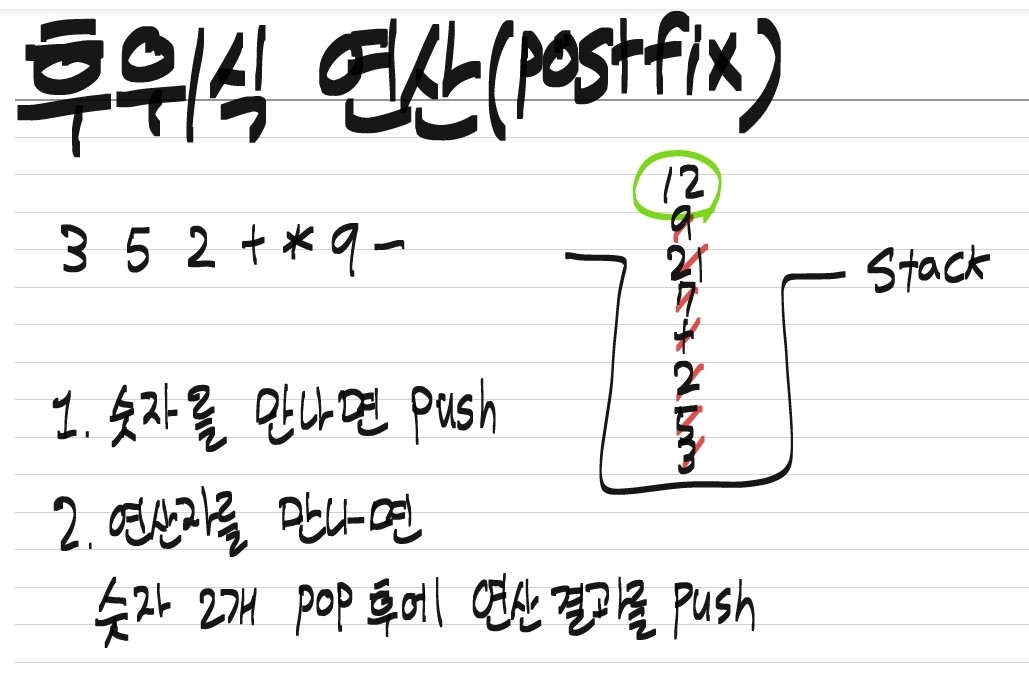 후위식 연산(postfix)
3 5 2 + * 9 -
12
9
21
7
+
2
5
3
Stack
1. 숫자를 만나면 push
2. 연산자를 만나면
숫자 2개 pop 후에 연산 결과를 push